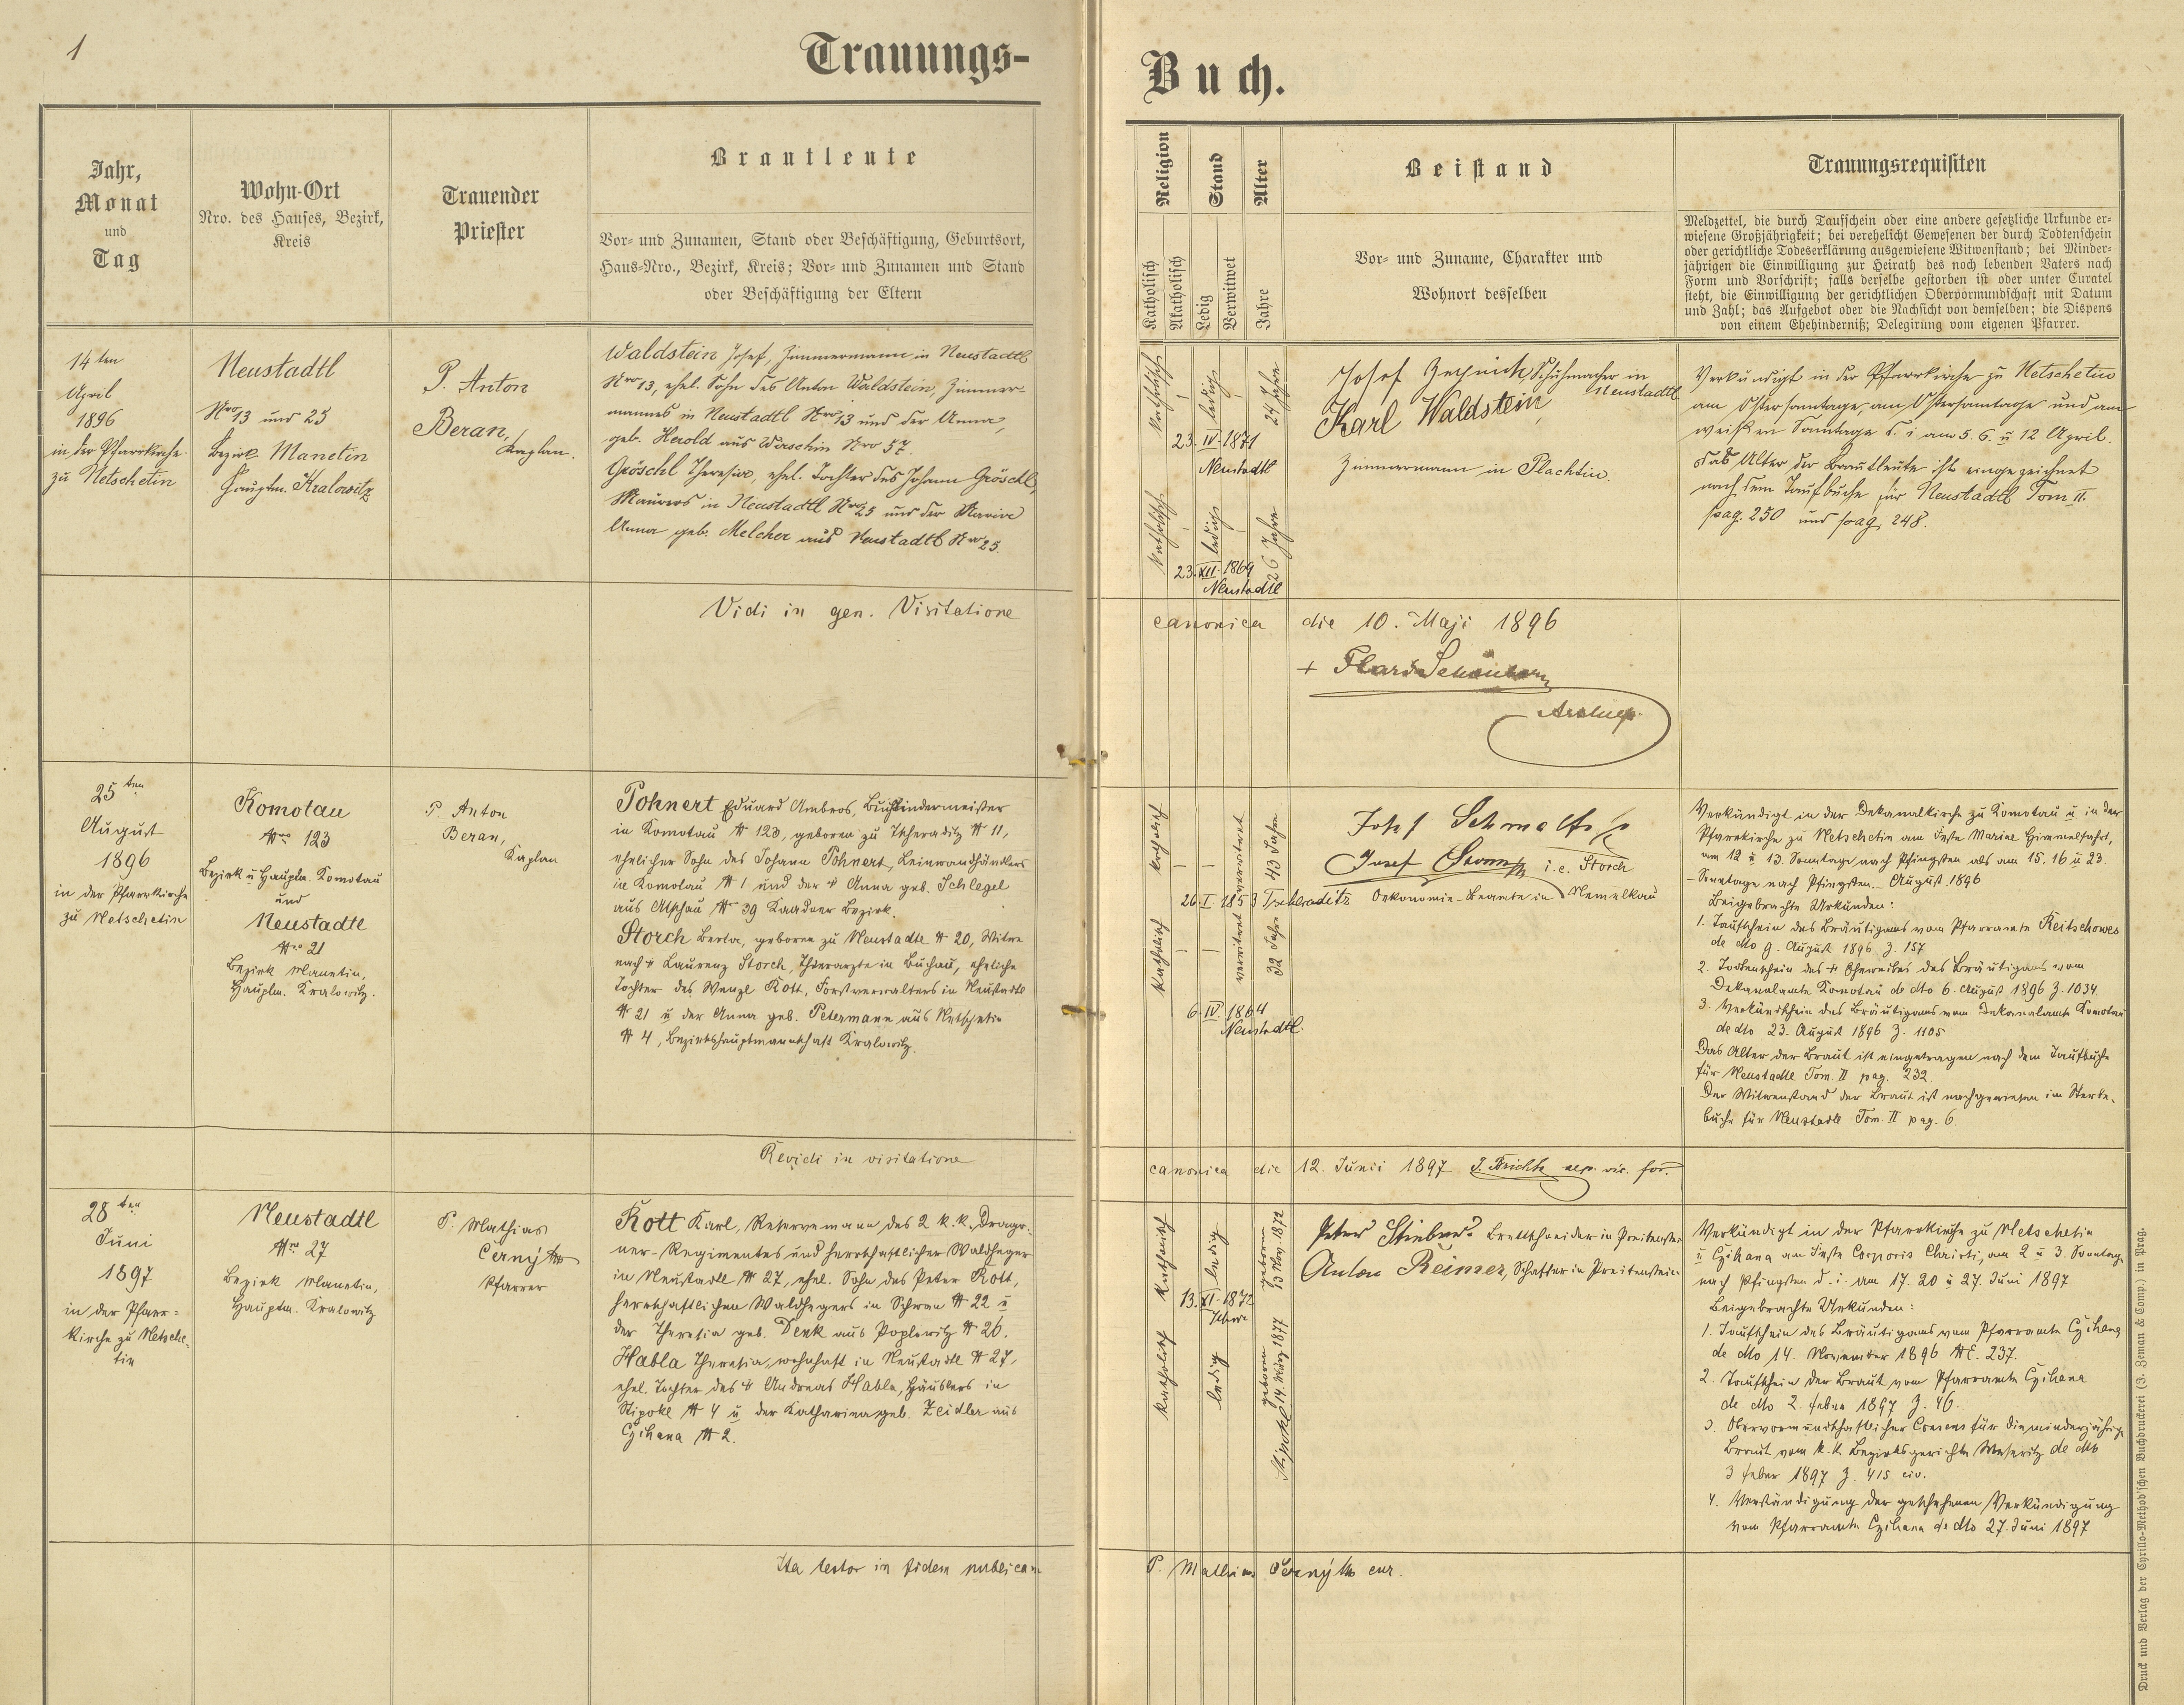 1
Trauungs-
Buch.
Jahr,
Monat
und
Tag
Wohn-Ort
Nro. des Hauses, Bezirk,
Kreis
Trauender
Priester
Brautleute
Vor- und Zunamen, Stand oder Beschäftigung, Geburtsort,
Haus-Nro., Bezirk, Kreis; Vor- und Zunamen und Stand
oder Beschäftigung der Eltern
Religion
Katholisch
Akatholisch
Stand
Ledig
Verwitwet
Alter
Jahre
Beistand
Vor- und Zuname, Charakter und
Wohnort desselben
Trauungsrequisiten
Meldzettel, die durch Taufschein oder eine andere gesetzliche Urkunde er-
wiesene Großjährigkeit; bei verehelicht Gewesenen der durch Todtenschein
oder gerichtliche Todeserklärung ausgewiesene Witwenstand; bei Minder-
jährigen die Einwilligung zur Heirath des noch lebenden Vaters nach
Form und Vorschrift; falls derselbe gestorben ist oder unter Curatel
steht, die Einwilligung der gerichtlichen Obervormundschaft mit Datum
und Zahl; das Aufgebot oder die Nachsicht von demselben; die Dispens
von einem Ehehinderniß; Delegirung vom eigenen Pfarrer.
14ten
April
1896
in der Pfarrkirche
zu Netschetin
Neustadtl
Nro 13 und 25
Bezirk Manetin
Hauptm. Kralowitz
P. Anton
Beran,
Kaplan.
Waldstein Josef, Zimmermann in Neustadtl
Nro 13, ehel. Sohn des Anton Waldstein, Zimmer-
mannes in Neustadtl Nro 13 und der Anna,
geb. Herold aus Wirschin Nro 57.
Gröschl Theresia, ehel. Tochter des Johann Gröschl,
Maurers in Neustadtl Nro 25 und der Maria
Anna geb. Melcher aus Neustadtl Nro 25.
katholisch
ledig
24 Jahre
23. IV. 1871
Neustadtl
katholisch
ledig
26 Jahre
23. XII. 1869
Neustadtl
Josef Schuhmacher in
Neustadtl
Karl Waldstein,
Zimmermann in Plachtin.
Verkündigt in der Pfarrkirche zu Netschetin
am Ostersonntage, am Ostersamtage und am
weißen Sonntage d. i. am 5. 6. u 12 April.
Das Alter der Brautleute ist eingezeichnet
nach dem Taufbuche für Neustadtl Tom II.
pag. 250 und pag. 248.
Vidi in gen. Visitatione
canonica die 10. Maji 1896
+ Schönborn
Archiep.
25ten
August
1896
in der Pfarrkirche
zu Netschetin
Komotau
Nro 123
Bezirk u Hauptm. Komotau
und
Neustadtl
Nro 21
Bezirk Manetin,
Hauptm. Kralowitz.
P. Anton
Beran,
Kaplan
Pohnert Eduard Ambros, Buchbindermeister
in Komotau N 123, geboren zu Tscheraditz N 11,
ehelicher Sohn des Johann Pohnert, Leinwandhändlers
in Komotau N 1 und der + Anna geb. Schlegel
aus Atschau N 39 Kaadner Bezirk.
Storch Berta, geboren zu Neustadtl N 20, Witwe
nach + Laurenz Storch, Thierarzte in Buchau, eheliche
Tochter des Wenzl Kott, Forstverwalters in Neustadtl
N 21 u der Anna geb. Petermann aus Netschetin
N 4, Bezirkshauptmannschaft Kralowitz.
katholisch
verwitwet
43 Jahre
26. I. 1853 Tscheraditz
katholisch
verwitwet
32 Jahre
6. IV. 1864
Neustadtl.
Josef
Josef i. e. Storch
Oekonomie-Beamte in Nemelkau
Verkündigt in der Dekanalkirche zu Komotau u in der
Pfarrkirche zu Netschetin am Feste Mariae Himmelfahrt,
am 12 u 13. Sonntage nach Pfingsten als am 15. 16 u 23.
Sonntage nach Pfingsten. August 1896
Beigebrachte Urkunden:
1. Taufschein des Bräutigams vom Pfarramte Reitschowes
de dto 9. August 1896 Z. 157
2. Todtenschein des + Eheweibes des Bräutigams vom
Dekanalamte Komotau de dto 6. August 1896 Z. 1034.
3. Verkündschein des Bräutigams vom Dekanalamte Komotau
de dto 23. August 1896 Z. 1105
Das Alter der Braut ist eingetragen nach dem Taufbuche
für Neustadtl Tom. II pag. 232.
Der Witwenstand der Braut ist nachgewiesen im Sterbe-
buche für Neustadtl Tom. II pag. 6.
Revidi in visitatione
canonica die 12. Junii 1897 vic. for.
28ten
Juni
1897
in der Pfarr-
kirche zu Netsche-
tin
Neustadtl
Nro 27
Bezirk Manetin,
Hauptm. Kralowitz
P. Mathias
Černý
Pfarrer
Kott Karl, Reservemann des 2 k. k. Drago-
ner-Regimentes und herrschaftlicher Waldheger
in Neustadtl N 27, ehel. Sohn des Peter Kott,
herrschaftlichen Waldhegers in Schwan N 22 u
der Theresia geb. Denk aus Poplowitz N 26.
Habla Theresia, wohnhaft in Neustadtl N 27,
ehel. Tochter des + Andreas Habla, Häuslers in
Stipokl N 4 u der Katharina geb. Zeidler aus
Cžihana N 2.
katholisch
ledig
geboren
13 Nov. 1872
13. XI. 1872
katholisch
ledig
geboren
14. März 1877
Stipokl
Peter Stieber Brettschneider in Preitenstein
Anton Reimer, Schaffer in Preitenstein
Verkündigt in der Pfarrkirche zu Netschetin
u Cžihana am Feste Corporis Christi, am 2 u 3. Sonntag
nach Pfingsten d. i. am 17. 20 u 27. Juni 1897
Beigebrachte Urkunden:
1. Taufschein des Bräutigams vom Pfarramte Cžihana
de dto 14. November 1896 NE. 237.
2. Taufschein der Braut vom Pfarramte Cžihana
de dto 2. Feber 1897 Z. 46.
3. Obervormundschaftlicher Consens für die minderjährige
Braut vom k. k. Bezirksgerichte Weseritz de dto
3 Feber 1897 Z. 415 civ.
4. Verständigung der geschehenen Verkündigung
vom Pfarramte Cžihana de dto 27. Juni 1897
Ita testor in fidem publicam
P. Mathias Černý cur.
Druck und Verlag der Cyrillo-Method'schen Buchdruckerei (J. Zeman & Comp.) in Prag.